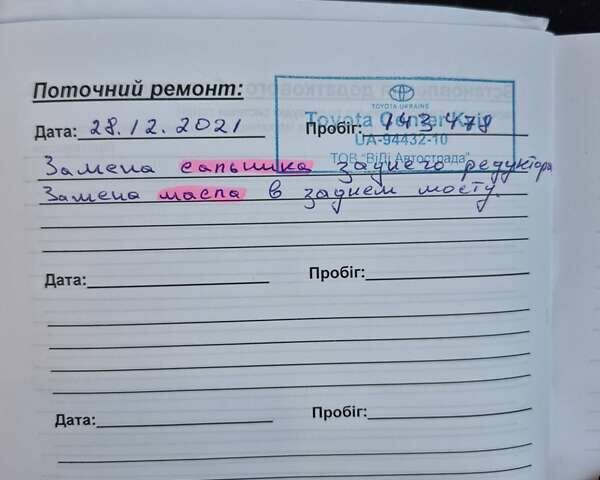 Поточний ремонт:
TOYOTA UKRAINE
Toyota Center Kyiv
Дата: 28.12.2021 Пробіг: 143 478
UA-94432-10
ТОВ "ВіДі Автострада"
Замена сальника заднего редуктора
Замена масла в заднем мосту.
Дата: Пробіг:
Дата: Пробіг: